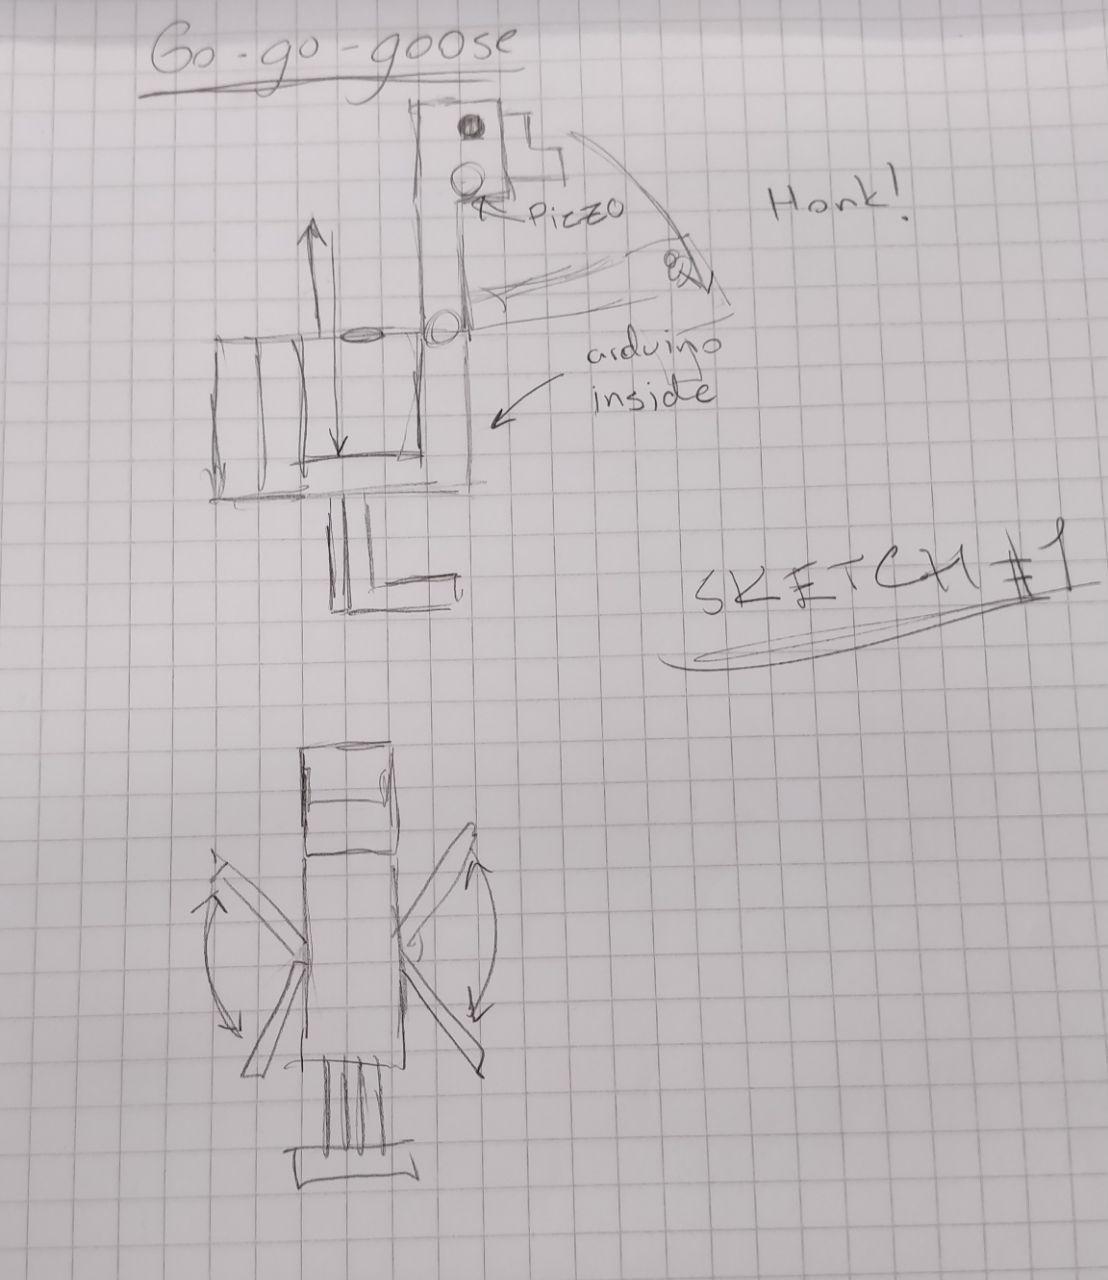 Go-go-goose
Piezo
Honk!
arduino
inside
SKETCH #1